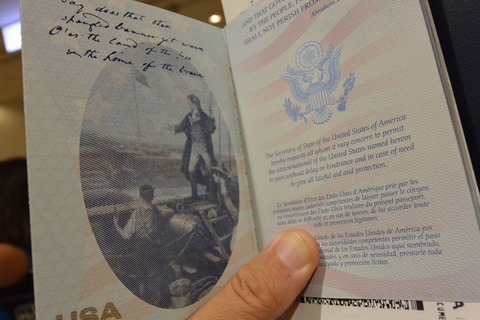 say does that star
spangled banner yet wave
O'er the land of the free
& the home of the brave
USA
AND THAT GOV
BY THE PEOPLE,
SHALL NOT PERISH FROM
Abraham
The Secretary of State of the United States of America
hereby requests all whom it may concern to permit
the citizen/national of the United States named herein
to pass without delay or hindrance and in case of need
to give all lawful aid and protection.
Le Secrétaire d'Etat des Etats-Unis d'Amérique prie par les
présentes toutes autorités compétentes de laisser passer le citoyen
ou ressortissant des Etats-Unis titulaire du présent passeport,
sans délai ni difficulté et, en cas de besoin, de lui accorder toute
aide et protection légitimes.
Estado de los Estados Unidos de América por
las autoridades competentes permitir el paso
de los Estados Unidos aquí nombrado,
y en caso de necesidad, prestarle toda
ayuda y protección lícitas.